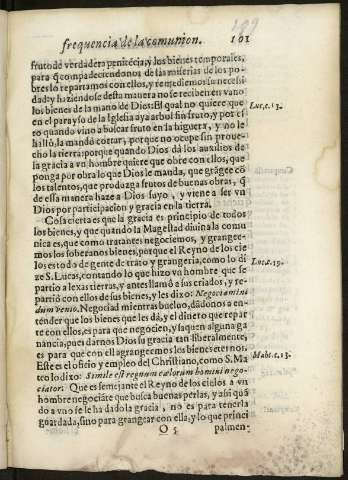 199
frequencia de la comunion. 101
fruto de verdadera penitẽcia, y los bienes temporales,
para q̃ compadeciendonos de las miserias de los po-
bres lo repartamos con ellos, y remediemos su necessi-
dad: y haziendose desta manera no se reciben en vano
los bienes de la mano de Dios: El qual no quiere que
en el parayso de la Iglesia aya arbol sin fruto, y por es-
to quando vino a buscar fruto en la higuera, y no le
halló, la mandó cortar, por que no ocupe sin proue-
cho la tierra: porque quando Dios dá los auxilios de
la gracia a vn hombre quiere que obre con ellos, que
ponga por obra lo que Dios le manda, que grãgee cõ
los talentos, que produzga frutos de buenas obras, q̃
de essa manera haze a Dios suyo, y viene a ser vn
Dios por participacion y gracia en la tierra.
Cosa cierta es que la gracia es principio de todos
los bienes, y que quando la Magestad diuina la comu
nica es, que como tratantes negociemos, y grangee-
mos los soberanos bienes, porque el Reyno de los cie
los es todo de gente de trato y grangeria, como lo di
ze S. Lucas, contando lo que hizo vn hombre que se
partio a lexas tierras, y antes llamó a sus criados, y re-
partió con ellos de sus bienes, y les dixo: Negociamini
dum venio. Negociad mientras buelvo, dãdonos a en-
tender que los bienes que les dá, y el dinero que repar
te con ellos, es para que negocien, y saquen alguna ga
nancia, pues darnos Dios su gracia tan liberalmente,
es para que con ella grangeemos los bienes eternos.
Este es el oficio y empleo del Christiano, como S. Ma
teo lo dixo: Simile est regnum cælorum homini nego-
ciatori: Que es semejante el Reyno de los cielos a vn
hombre negociãte que busca buenas perlas, y assi quã
do a vno se le ha dado la gracia, no es para tenerla
guardada, sino para grangear con ella, y lo que princi
O 5 palmen-
Luc. c. 13.
Luc. c. 19.
Math. c. 13.